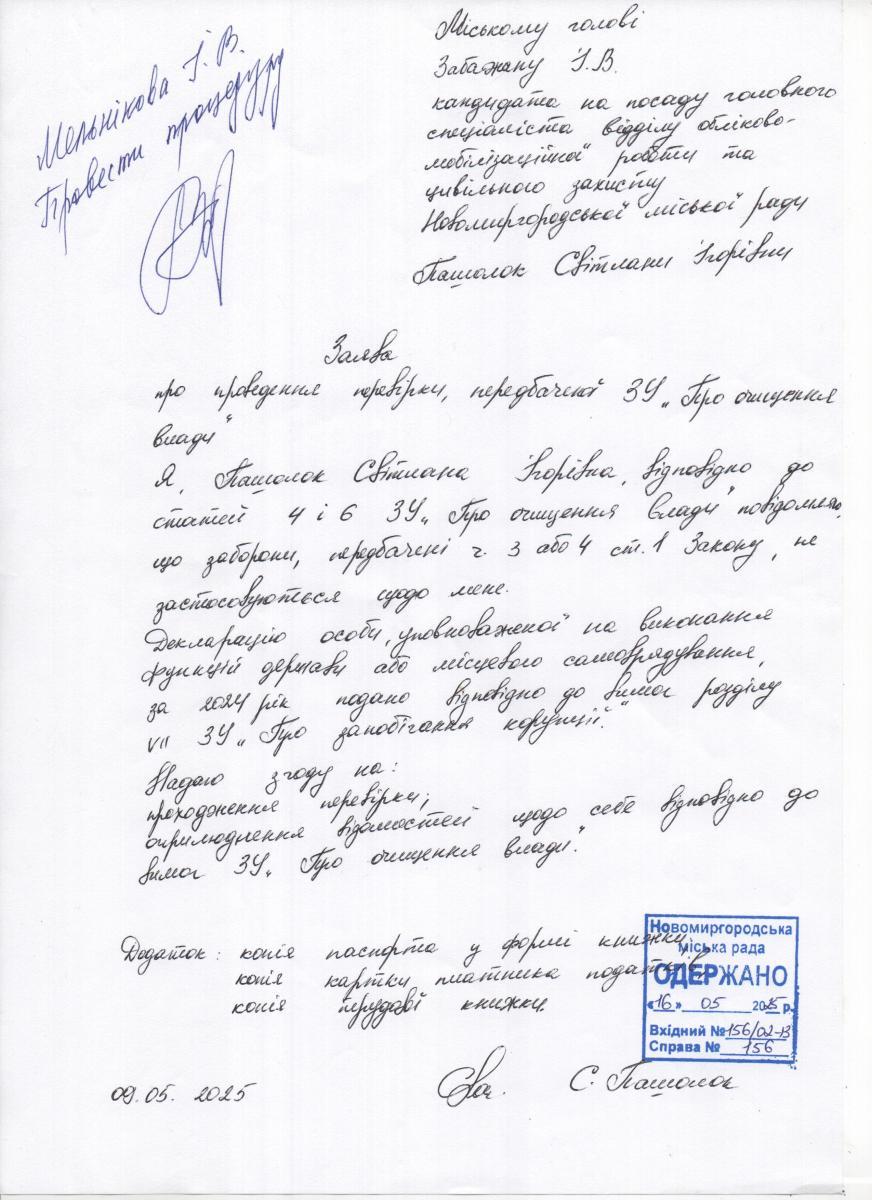 Мельнікова І. В.
Провести процедуру
Міському голові
Забажану І.В.
кандидата на посаду головного
спеціаліста відділу обліково-
мобілізаційної роботи та
цивільного захисту
Новомиргородської міської ради
Пашолок Світлани Ігорівни
Заява
про проведення перевірки, передбаченої ЗУ „Про очищення
влади"
Я, Пашолок Світлана Ігорівна, відповідно до
статей 4 і 6 ЗУ „Про очищення влади" повідомляю,
що заборони, передбачені ч. 3 або 4 ст. 1 Закону, не
застосовуються щодо мене.
Декларацію особи, уповноваженої на виконання
функцій держави або місцевого самоврядування,
за 2024 рік подано відповідно до вимог розділу
VII ЗУ „Про запобігання корупції".
Надаю згоду на:
проходження перевірки;
оприлюднення відомостей щодо себе відповідно до
вимог ЗУ „Про очищення влади".
Додаток: копія паспорта у формі книжки,
копія картки платника податків,
копія трудової книжки.
Новомиргородська
міська рада
ОДЕРЖАНО
«16» 05 2025 р.
Вхідний № 156/02-13
Справа № 156
09.05.2025 С. Пашолок